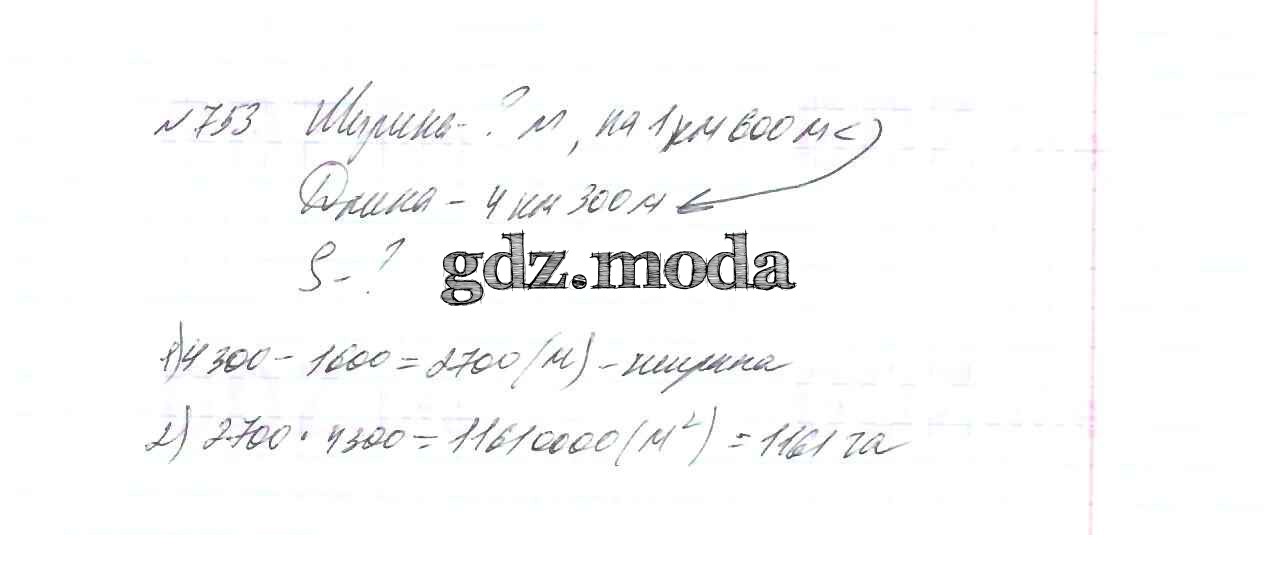 №753 Ширина - ? м, на 1 км 600 м <
Длина - 4 км 300 м
S - ?
gdz.moda
1) 4300 - 1600 = 2700 (м) - ширина
2) 2700 · 4300 = 11610000 (м²) = 1161 га